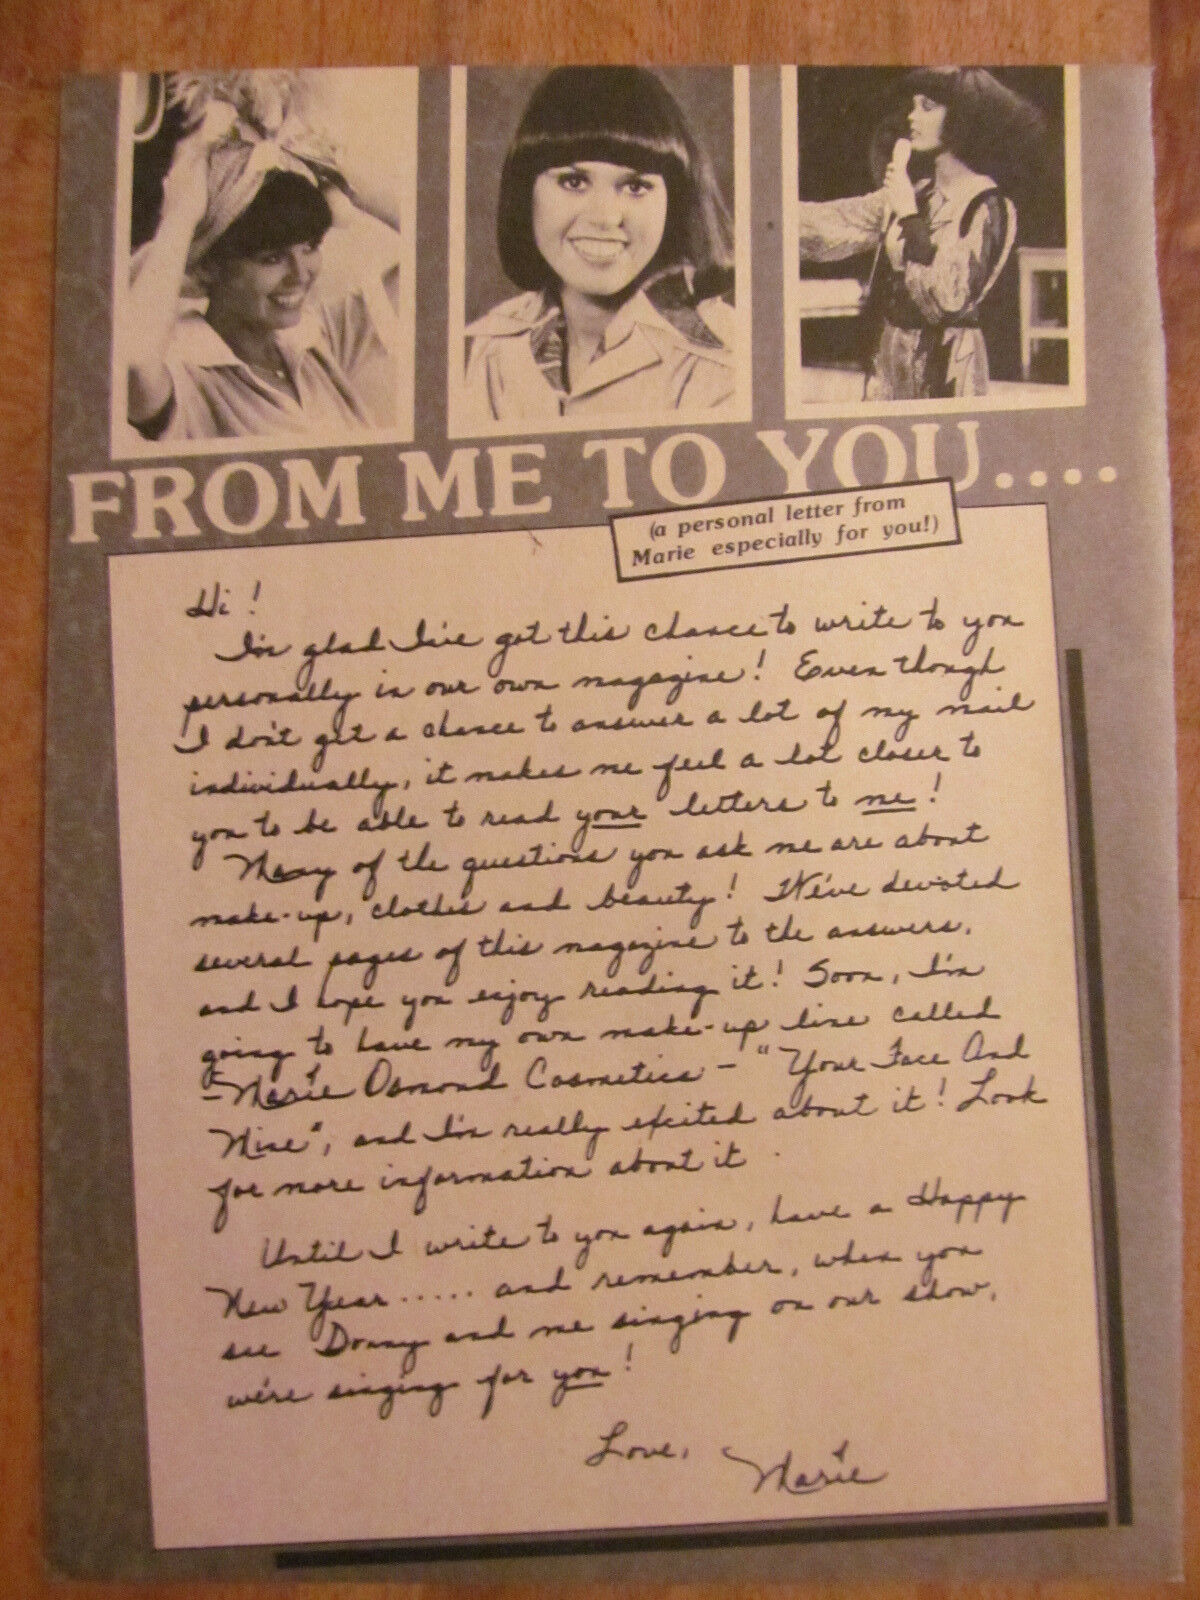 FROM ME TO YOU....
(a personal letter from
Marie especially for you!)
Hi!
I'm glad I've got this chance to write to you
personally in our own magazine! Even though
I don't get a chance to answer a lot of my mail
individually, it makes me feel a lot closer to
you to be able to read your letters to me!
Many of the questions you ask me are about
make-up, clothes and beauty! We've devoted
several pages of this magazine to the answers,
and I hope you enjoy reading it! Soon, I'm
going to have my own make-up line called
"Marie Osmond Cosmetics - "Your Face And
Mine", and I'm really excited about it! Look
for more information about it.
Until I write to you again, have a Happy
New Year..... and remember, when you
see Donny and me singing on our show,
we're singing for you!
Love,
Marie